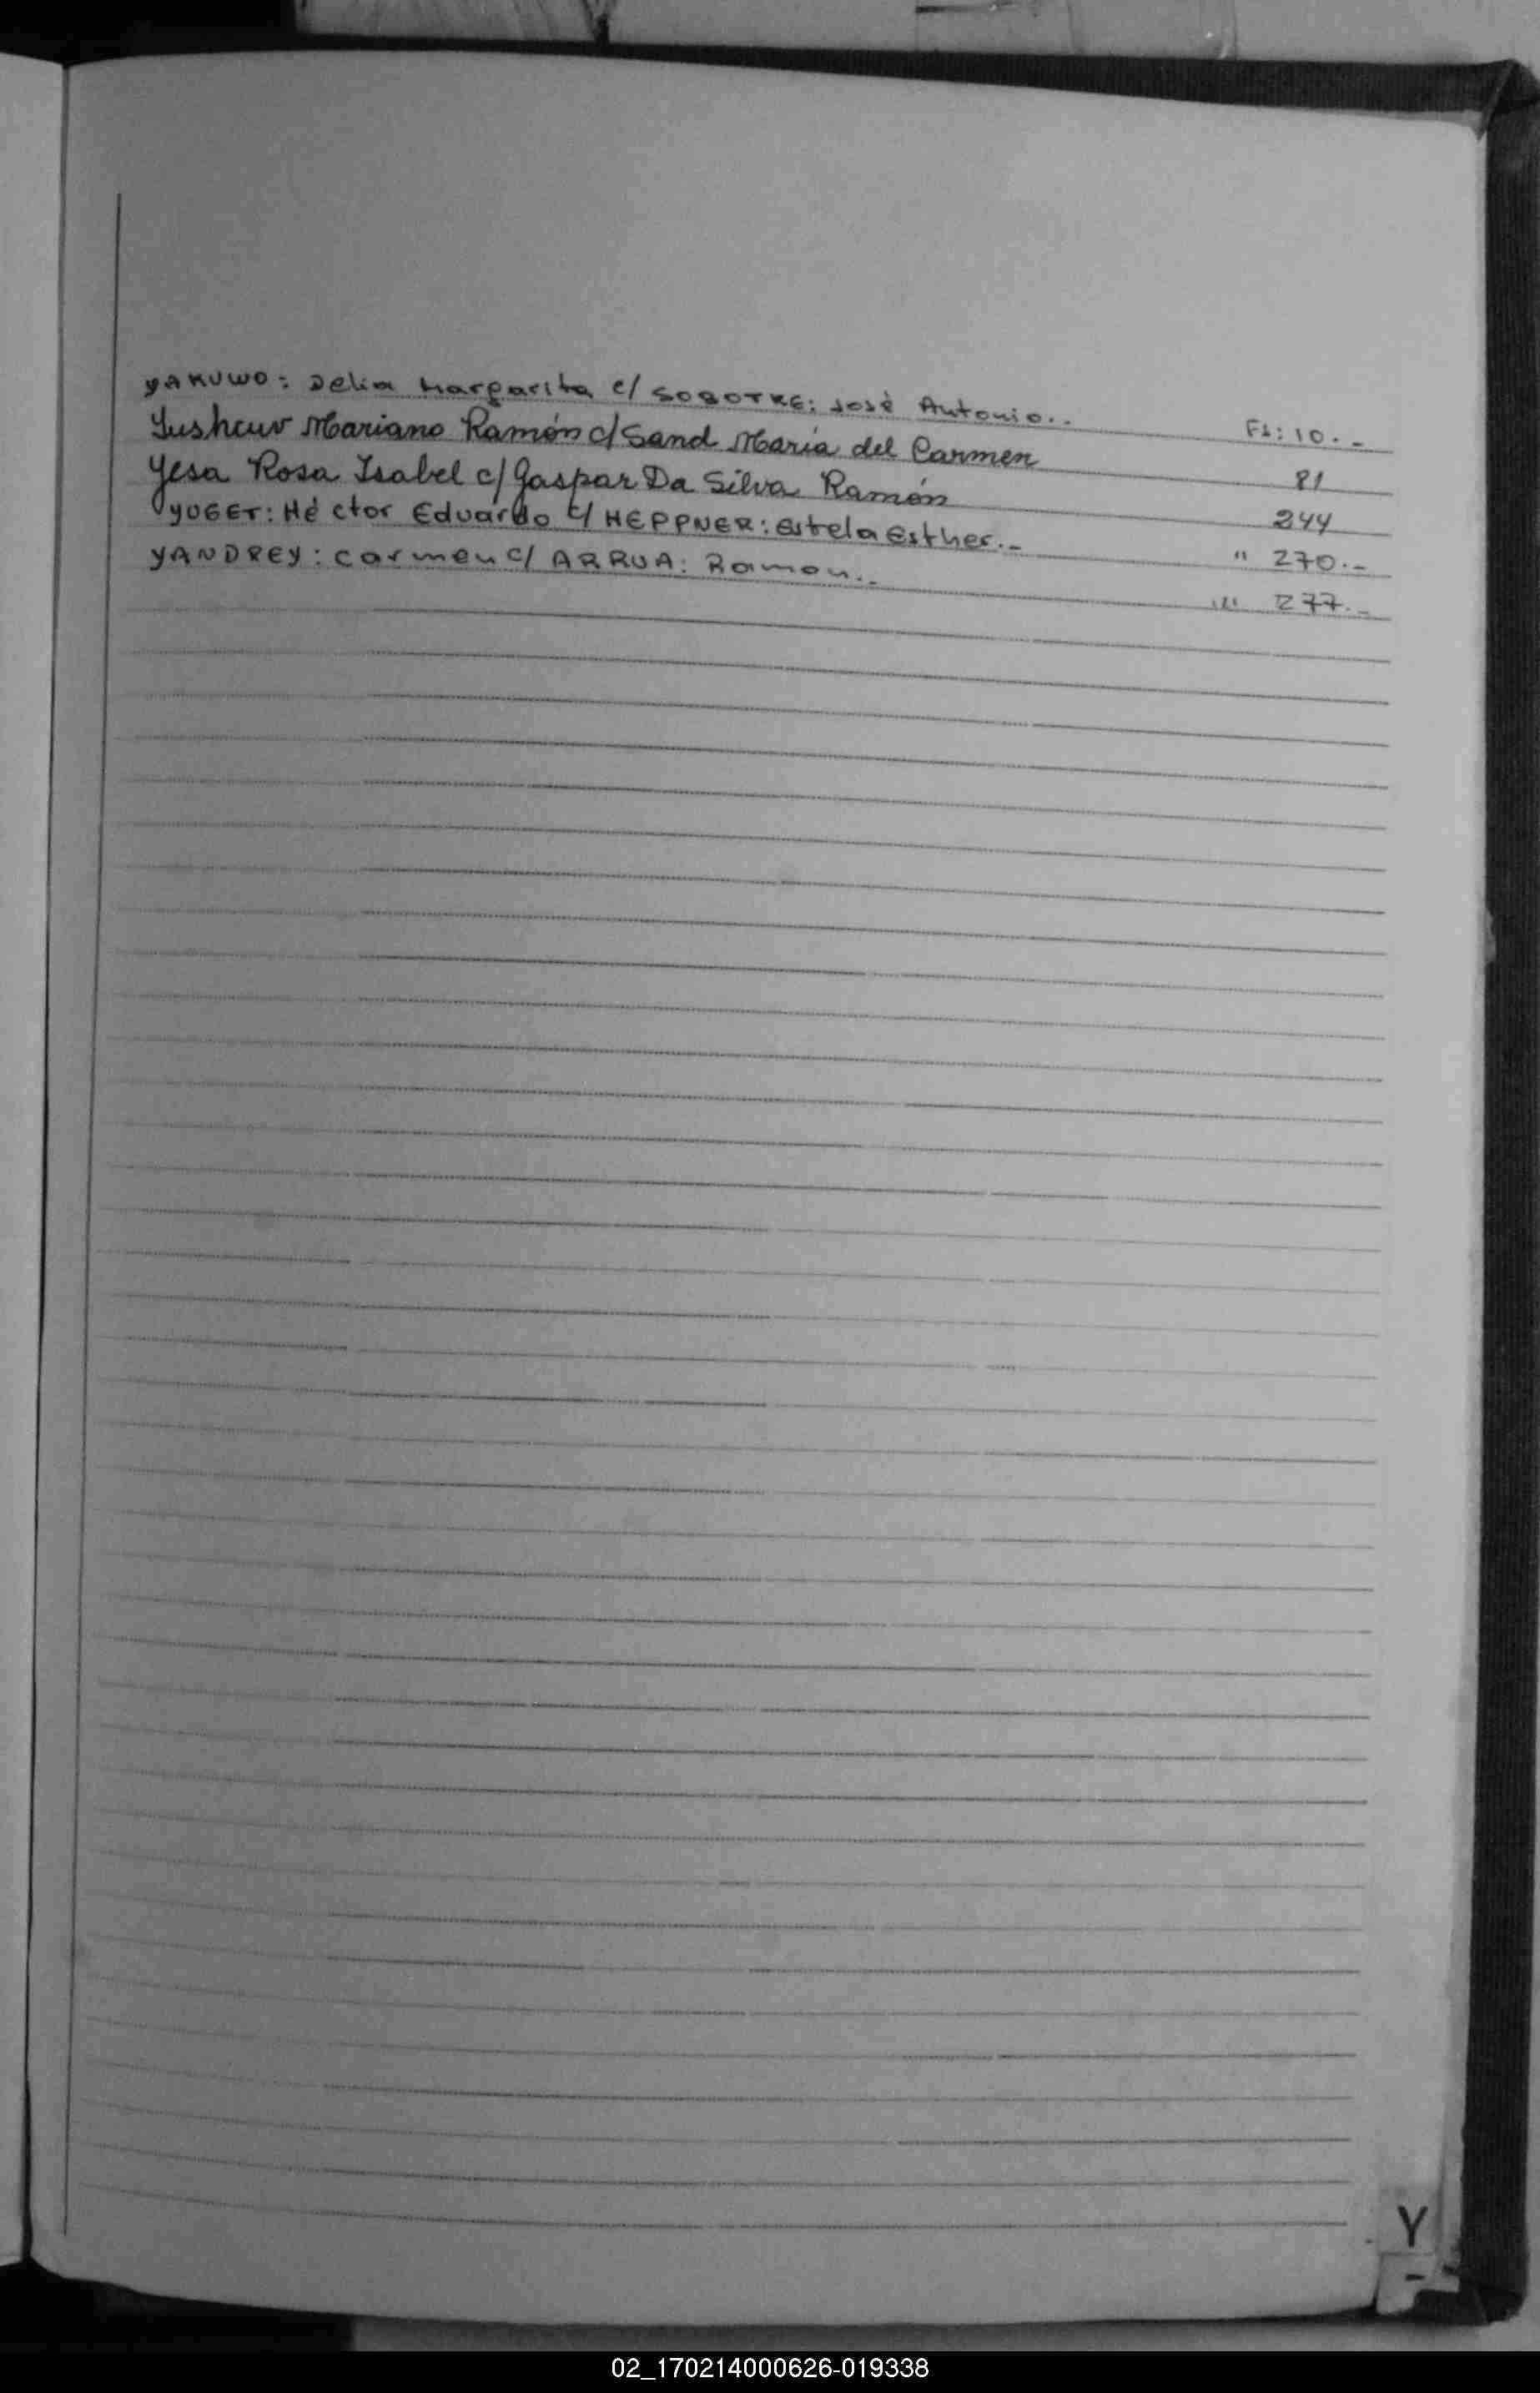 YAKUWO: Delia Margarita c/ SOBOTKE: José Antonio.. Fs: 10.-
Yushcuv Mariano Ramón c/ Sand María del Carmen 81
Yesa Rosa Isabel c/ Gaspar Da Silva Ramón 244
YUGET: Héctor Eduardo c/ HEPPNER: Estela Esther.- " 270.-
YANDREY: Carmen c/ ARRUA: Ramon.. " 277.-
Y
02_170214000626-019338